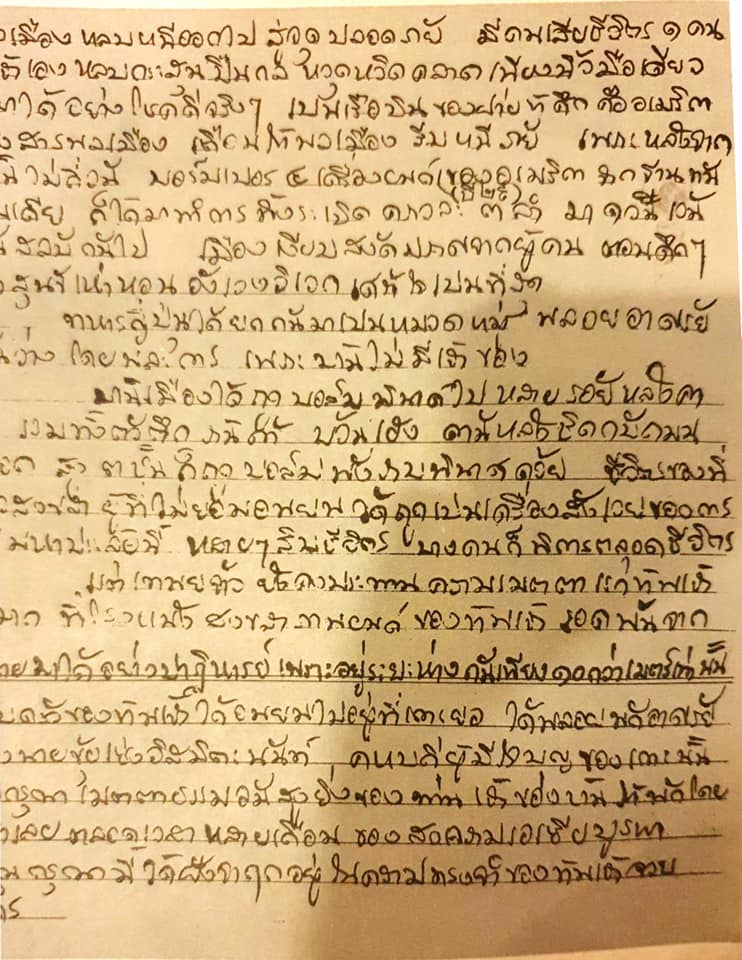 เมือง หลบหนีออกไป สู่จุดปลอดภัย มีคนเสียชีวิตร ๑ คน
เอง หลบกระสุนปืนกล หวุดหวิดคลาด เพียงนิ้วมือเดียว
มาได้อย่างโชคดีจริงๆ เป็นเรือบินของฝ่ายข้าศึก คืออเมริกา
สารพลเมือง เตือนให้พลเมือง รีบหนีภัย เพราะหลังจาก
นี้ไม่กี่วันมี บอร์มเบอร ๔ เครื่องยนต์ (บี ๒๙) ของอเมริกา จากฐานทัพ
อินเดีย ก็ได้มาทำการทิ้งระเบิด คราวละ ๓ ลำ มา ๑๐ คืน เว้น
สลับกันไป เมืองเงียบสงัดปราศจากผู้คน ตอนดึกๆ
สุนัขเห่าหอน วังเวงวิเวก เศร้าใจเป็นที่สุด
ทหารญี่ปุ่นได้ยกกันมาเป็นหมวดหมู่ พลอยอาศรัย
ว่าง โดยพละการ เพราะบ้านไม่มีเจ้าของ
บ้านเมืองได้ถูกบอร์มพินาศไป หลายร้อยหลังคา
รวมทั้งตัวตึก บ้วนเฮง
สามชั้นก็ถูกบอร์มพังภินพินาศด้วย ชีวิตรของพี่
สงขลา ผู้ที่ไม่ยอมอพยพ ได้ถูกเป็นเครื่องสังเวยของการ
หลายๆ สิบชีวิตร บางคนก็พิการตลอดชีวิตร
แต่เทพยเจ้า ยังคงประทานความเมตตาแก่ข้าพเจ้า
มาก ที่โรงหนัง สงขลาภาพยนต์ ของข้าพเจ้า รอดพ้นจาก
มาได้อย่างปาฏิหารย์ เพราะอยู่ระยะห่างกันเพียง ๑๐ กว่าเมตร์เท่านั้น
ของข้าพเจ้าได้อพยพไปอยู่ที่เกาะยอ ได้พลอยพึ่งอาศรัย
นายชัยเซ่ง อิสมิตะนันท์ คหบดีผู้มีใจบุญของเกาะนั้น
กรุณา เมตตาธรรมอันสูงยิ่งของท่าน เจ้าของบ้าน ให้พักโดย
ตลอดเวลา หลายเดือน ของสงครามเอเซียบูรพา
กรุณานี้ ได้ฝังจารึกอยู่ในความทรงจำของข้าพเจ้าจวบ